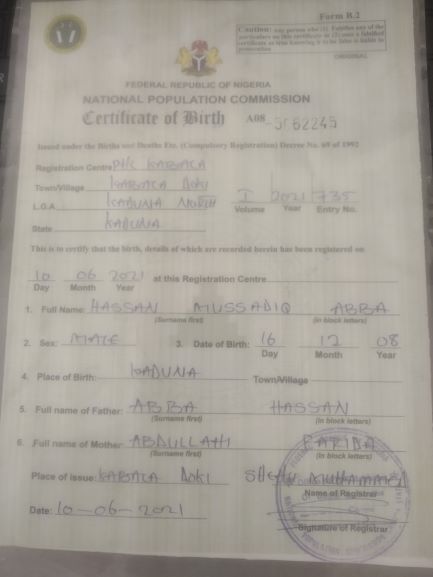 Form B.2
Caution: Any person who (1) Falsifies any of the
particulars on this certificate or (2) uses a falsified
certificate as true knowing it to be false is liable to
prosecution
ORIGINAL
FEDERAL REPUBLIC OF NIGERIA
NATIONAL POPULATION COMMISSION
Certificate of Birth A08-
Issued under the Births and Deaths Etc. (Compulsory Registration) Decree No. 69 of 1992
Registration Centre KABALA
Town/Village KABALA DOKI
L.G.A. KADUNA NORTH I 2021 735
Volume Year Entry No.
State KADUNA
This is to certify that the birth, details of which are recorded herein has been registered on
10 06 2021 at this Registration Centre
Day Month Year
1. Full Name: HASSAN MUSSADIQ ABBA
(Surname first) (in block letters)
2. Sex: MALE 3. Date of Birth: 16 12 08
Day Month Year
4. Place of Birth: KADUNA Town/Village
5. Full name of Father: ABBA HASSAN
(Surname first) (in block letters)
6. Full name of Mother: ABDULLAHI FARIDA
(Surname first) (in block letters)
Place of issue: KABALA DOKI SHEHU MUHAMMAD
Name of Registrar
Date: 10-06-2021
Signature of Registrar